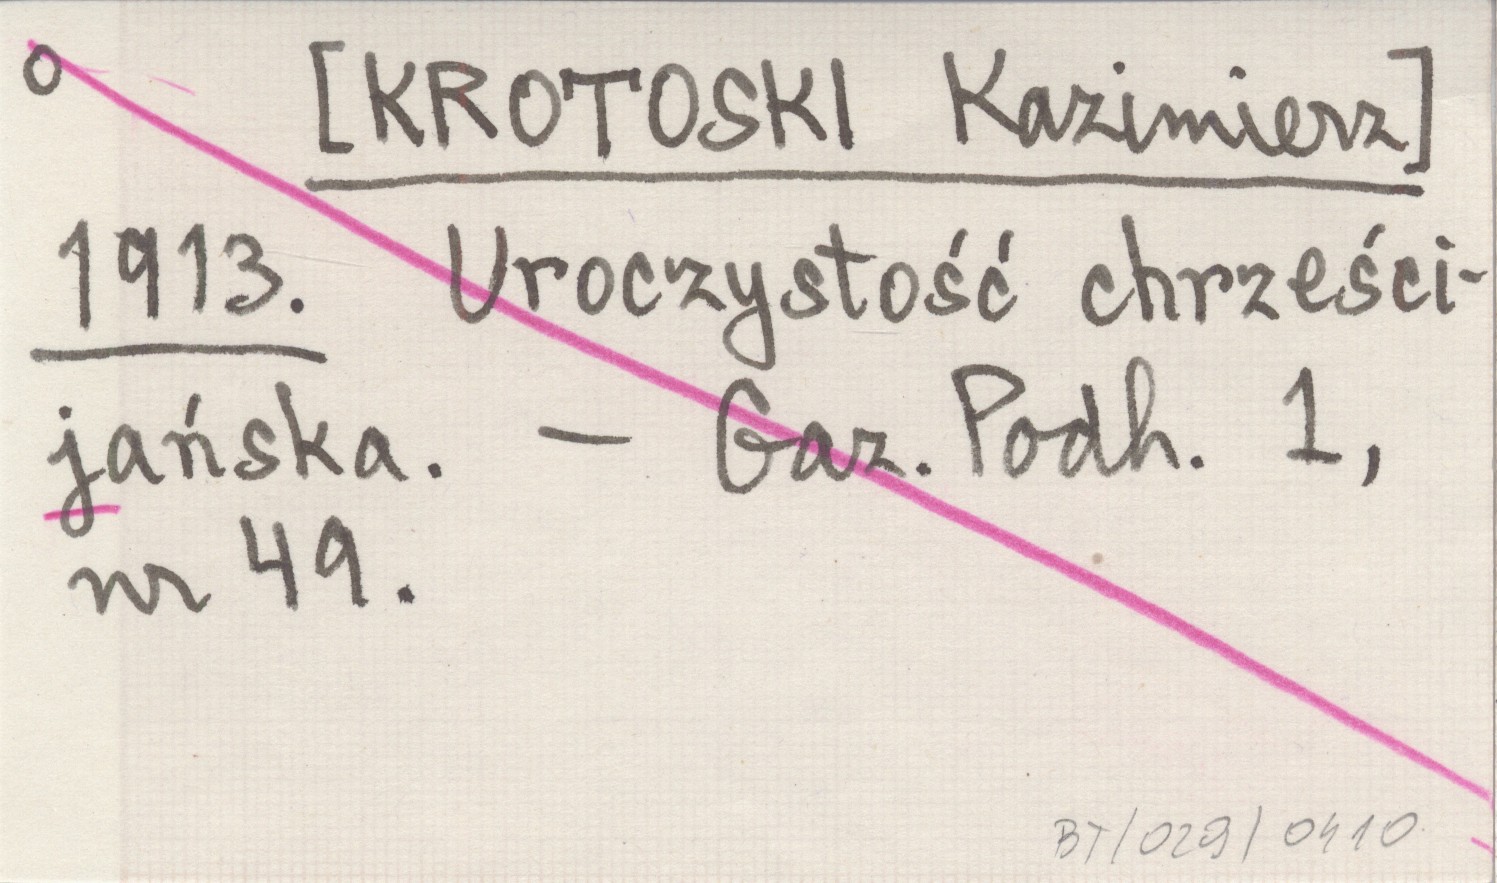 o [KROTOSKI Kazimierz]
1913. Uroczystość chrześci-
jańska. — Gaz. Podh. 1,
nr 49.
BT/029/0410